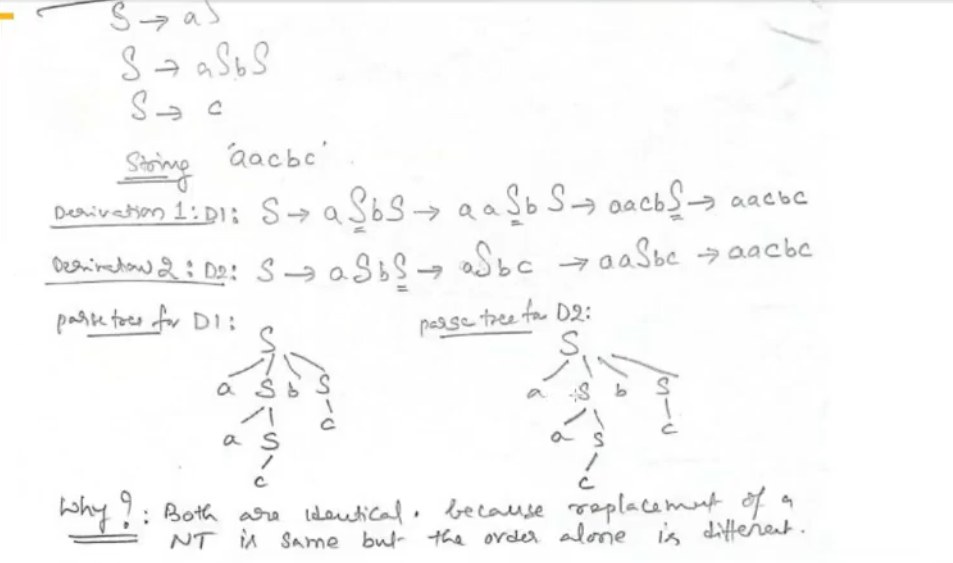 S → aS
S → aSbS
S → c
String 'aacbc'.
Derivation 1: D1: S → aSbS → aaSbS → aacbS → aacbc
Derivation 2: D2: S → aSbS → aSbc → aaSbc → aacbc
parse tree for D1: parse tree for D2:
S S
a S b S a S b S
a S c a S c
c c
Why?: Both are identical. because replacement of a
NT is same but the order alone is different.